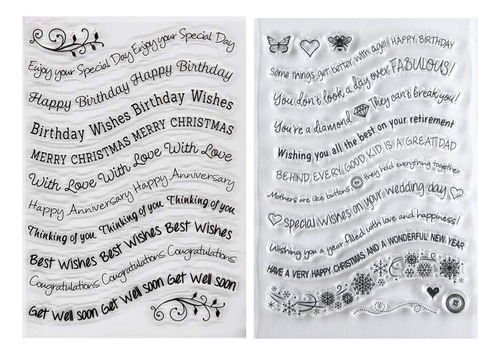 Enjoy your Special Day Enjoy your Special Day
Happy Birthday Happy Birthday
Birthday Wishes Birthday Wishes
MERRY CHRISTMAS MERRY CHRISTMAS
With Love With Love With Love
Happy Anniversary Happy Anniversary
Thinking of you Thinking of you Thinking of you
Best Wishes Best Wishes Best Wishes
Congratulations Congratulations Congratulations
Get Well soon Get Well soon Get Well soon
HAPPY BIRTHDAY
Some things get better with age!
You don't look a day over FABULOUS!
You're a diamond They can't break you!
Wishing you all the best on your retirement
BEHIND EVERY GOOD KID IS A GREAT DAD
Mothers are like buttons they hold everything together
Special Wishes on your wedding day
Wishing you a year filled with love and happiness!
HAVE A VERY HAPPY CHRISTMAS AND A WONDERFUL NEW YEAR